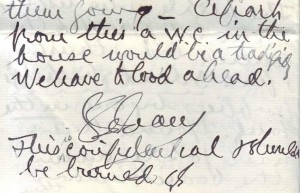 them going – Apart
from this a W.C. in the
house would be a
We have blood ahead.
This confidential
be burned